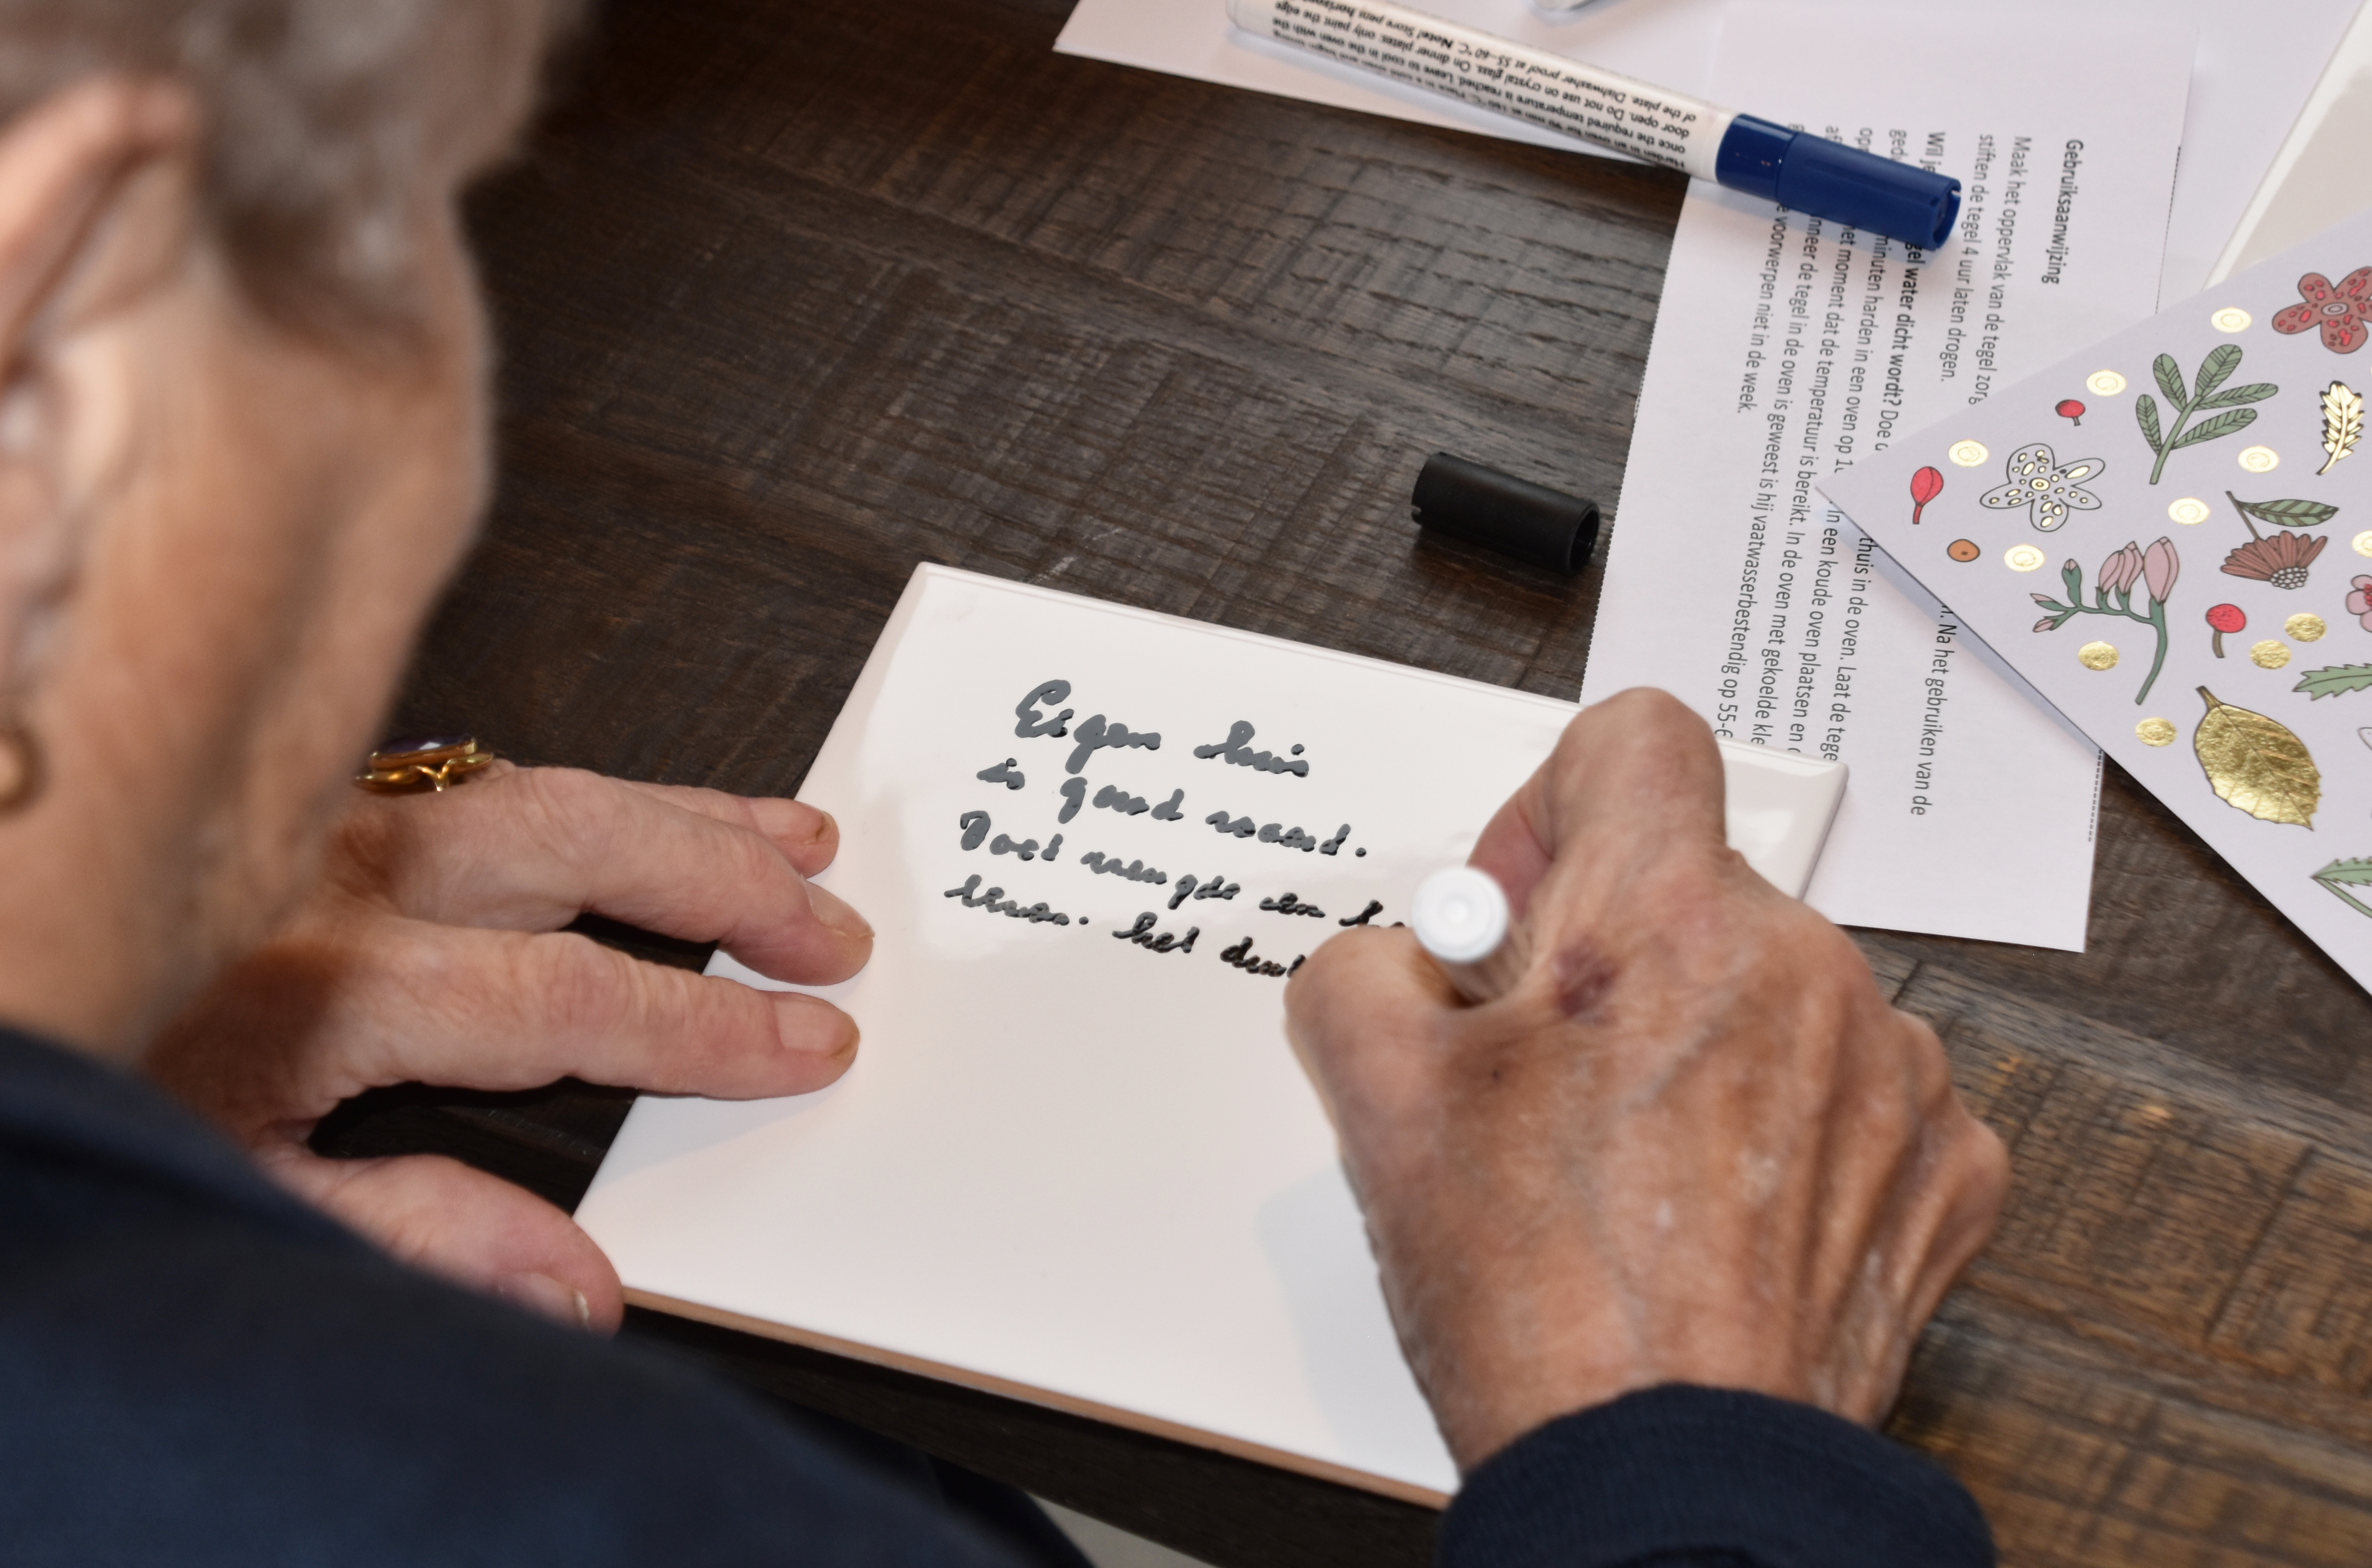 Eigen huis
is goud waard.
Doet vreugde en
leven. het
Gebruiksaanwijzing
Maak het oppervlak van de tegel
. Na het gebruiken van de
stiften de tegel 4 uur laten drogen.
Wil je
water dicht wordt? Doe
thuis in de oven. Laat de
minuten harden in een oven op
In een koude oven plaatsen en
het moment dat de temperatuur is bereikt. In de oven met gekoelde
de tegel in de oven is geweest is hij vaatwasserbestendig op 55-
voorwerpen niet in de week.
once the required temperature is reached. Leave to cool in the oven with the
door open. Do not use on crystal glass. On dinner plates: only paint the edge
of the plate. Dishwasher proof at 55-60 °C. Note! Store pens